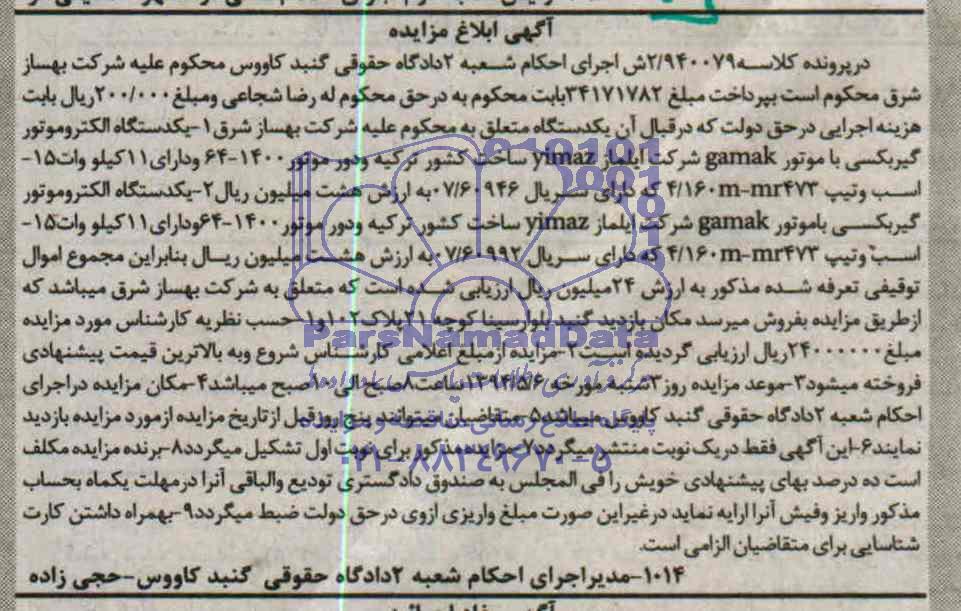 آگهی ابلاغ مزایده
درپرونده کلاسه۲/۹۴۰۰۷۹ش اجرای احکام شعبه ۲دادگاه حقوقی گنبد کاووس محکوم علیه شرکت بهساز
شرق محکوم است بپرداخت مبلغ ۳۴۱۷۱۷۸۲بابت محکوم به درحق محکوم له رضا شجاعی ومبلغ۲۰۰/۰۰۰ریال بابت
هزینه اجرایی درحق دولت که درقبال آن یکدستگاه متعلق به محکوم علیه شرکت بهساز شرق۱-یکدستگاه الکتروموتور
گیربکسی با موتور gamak شرکت ایلماز yimaz ساخت کشور ترکیه ودور موتور۱۴۰۰-۶۴ ودارای۱۱کیلو وات۱۵-
اسب وتیپ ۴/۱۶۰m-mr۴۷۳ که دارای سریال ۰۷/۶۰۹۴۶به ارزش هشت میلیون ریال۲-یکدستگاه الکتروموتور
گیربکسی باموتور gamak شرکت ایلماز yimaz ساخت کشور ترکیه ودور موتور۱۴۰۰-۶۴ودارای۱۱کیلو وات۱۵-
اسب وتیپ ۴/۱۶۰m-mr۴۷۳ که دارای سریال ۰۷/۶۰۹۹۲به ارزش هشت میلیون ریال بنابراین مجموع اموال
توقیفی تعرفه شده مذکور به ارزش ۲۴میلیون ریال ارزیابی شده است که متعلق به شرکت بهساز شرق میباشد که
ازطریق مزایده بفروش میرسد مکان بازدید گنبد بلوارسینا کوچه پلاک حسب نظریه کارشناس مورد مزایده
مبلغ۲۴۰۰۰۰۰۰ریال ارزیابی گردیده است۲-مزایده ازمبلغ اعلامی کارشناس شروع وبه بالاترین قیمت پیشنهادی
فروخته میشود۳-موعد مزایده روز۳شنبه مورخه ۱۳۹۴/۵/۶ساعت۸صبح الی۱۰صبح میباشد۴-مکان مزایده دراجرای
احکام شعبه ۲دادگاه حقوقی گنبد کاووس میباشد۵-متقاضیان میتوانند پنج روزقبل ازتاریخ مزایده ازمورد مزایده بازدید
نمایند۶-این آگهی فقط دریک نوبت منتشر میگردد۷-مزایده مذکور برای نوبت اول تشکیل میگردد۸-برنده مزایده مکلف
است ده درصد بهای پیشنهادی خویش را فی المجلس به صندوق دادگستری تودیع والباقی آنرا درمهلت یکماه بحساب
مذکور واریز وفیش آنرا ارایه نماید درغیراین صورت مبلغ واریزی ازوی درحق دولت ضبط میگردد۹-بهمراه داشتن کارت
شناسایی برای متقاضیان الزامی است.
۱۰۱۴-مدیراجرای احکام شعبه ۲دادگاه حقوقی گنبد کاووس-حجی زاده
ParsNamadData
پایگاه اطلاع رسانی مناقصه و مزایده
۰۲۱-۸۸۳۴۹۶۷۰-۵